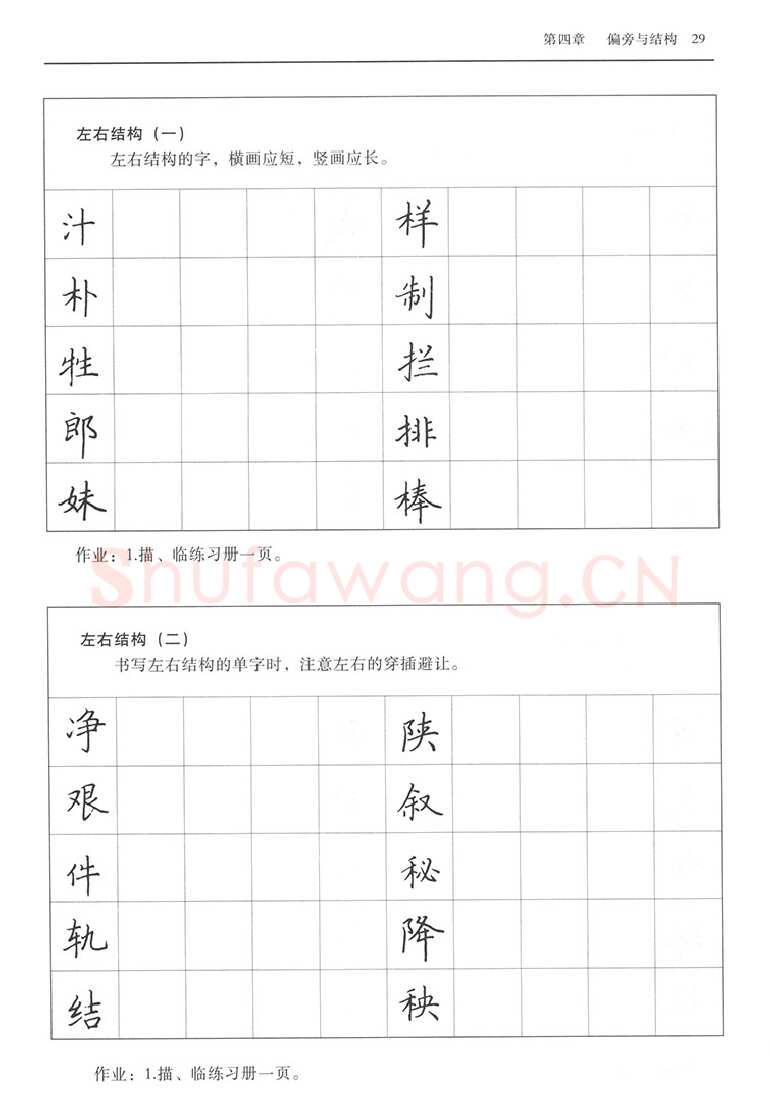 第四章 偏旁与结构 29
左右结构（一）
左右结构的字，横画应短，竖画应长。
汁 样
朴 制
牲 拦
郎 排
妹 棒
作业：1.描、临练习册一页。
Shufawang.CN
左右结构（二）
书写左右结构的单字时，注意左右的穿插避让。
净 陕
艰 叙
件 秘
轨 降
结 秧
作业：1.描、临练习册一页。